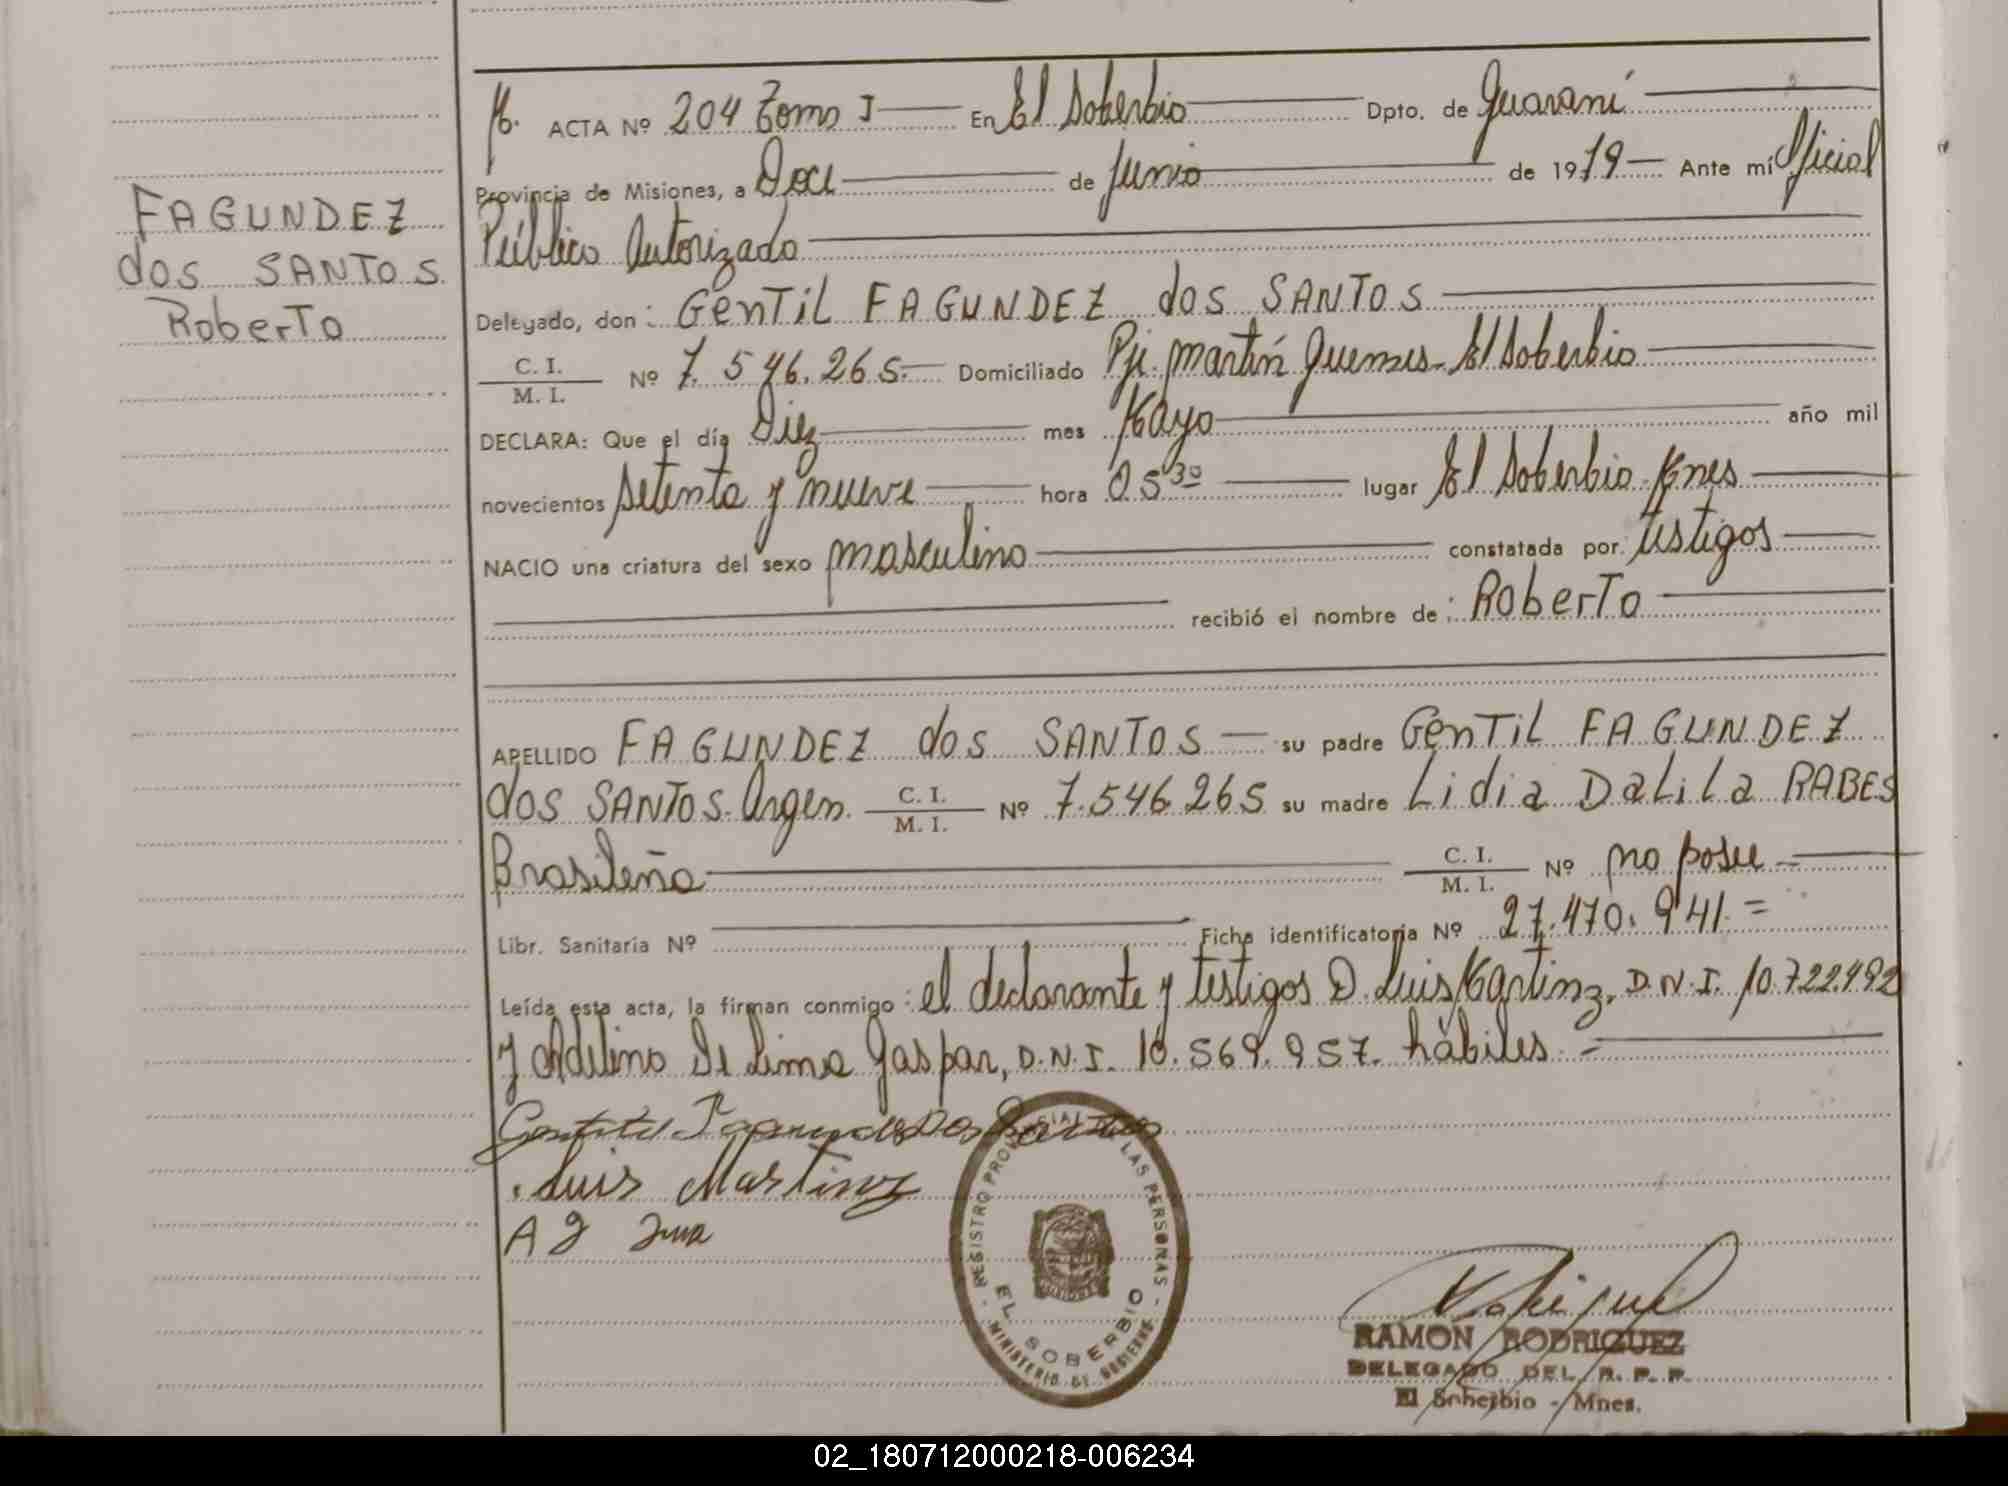 FAGUNDEZ
dos SANTOS
Roberto
M. ACTA Nº 204 Tomo I En El Soberbio Dpto. de Guaraní
Provincia de Misiones, a Doce de junio de 1979 Ante mí Oficial
Público Autorizado
Delegado, don: GenTiL FAGUNDEZ dos SANTOS
C. I. / M. I. Nº 7.546.265.- Domiciliado Pje. Martín Guemes - El Soberbio
DECLARA: Que el día Diez mes Mayo año mil
novecientos setenta y nueve hora 05 30 lugar El Soberbio Mnes
NACIO una criatura del sexo masculino constatada por: testigos
recibió el nombre de: Roberto
APELLIDO FAGUNDEZ dos SANTOS su padre GenTiL FAGUNDEZ
dos SANTOS. Argen. C. I. / M. I. Nº 7.546.265 su madre Lidia DaLiLa RABES
Brasileña C. I. / M. I. Nº no posee
Libr. Sanitaria Nº Ficha identificatoria Nº 27.470.941 =
Leída esta acta, la firman conmigo: el declarante y testigos D. Luis Martinz, D.N.I. 10.722.492
y Adelino De Lima Gaspar, D.N.I. 10.569.957. hábiles =
Dos Santos
Luis Martinz
A
REGISTRO PROVINCIAL DE LAS PERSONAS - MINISTERIO DE GOBIERNO -
EL SOBERBIO
RAMON RODRIGUEZ
DELEGADO DEL R. P. P.
El Soberbio - Mnes.
02_180712000218-006234